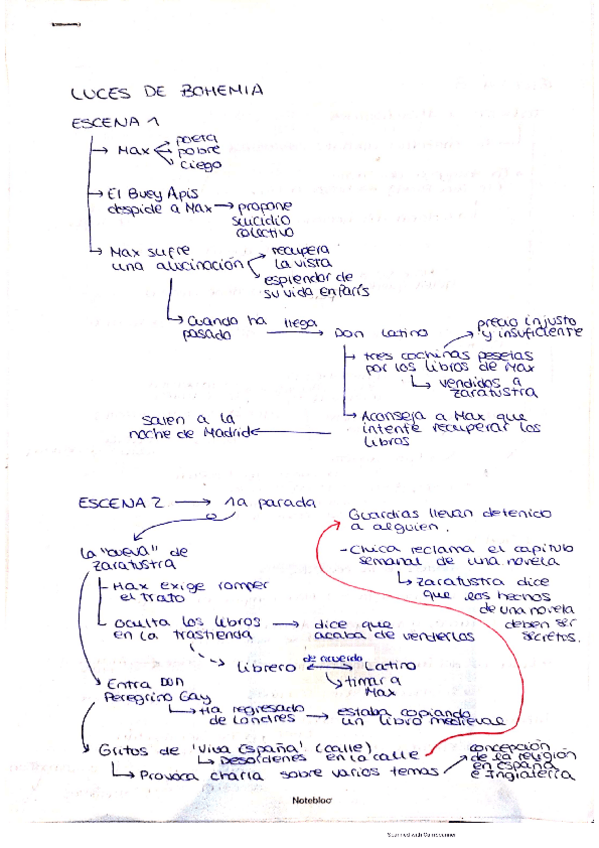 LUCES DE BOHEMIA
ESCENA 1
Max
poeta
pobre
ciego
El Buey Apis
despide a Max → propone
suicidio
colectivo
Max sufre
una alucinación
recupera
la vista
esplendor de
su vida en París
Cuando ha
pasado
llega
Don Latino
precio injusto
y insuficiente
tres cochinas pesetas
por los libros de Max
vendidos a
Zaratustra
Aconseja a Max que
intente recuperar los
libros
Salen a la
noche de Madrid
ESCENA 2 → 1a parada
La "cueva" de
Zaratustra
- Max exige romper
el trato
- Oculta los libros → dice que
en la trastienda acaba de venderlos
librero
de acuerdo
Latino
timar a
Max
Entra DON
Peregrino Gay
Ha regresado → estaba copiando
de Londres un libro medieval
Gritos de 'Viva España' (calle)
Desórdenes en la calle
Provoca charla sobre varios temas
concepción
de la religión
en España
e Inglaterra
Guardias llevan detenido
a alguien.
- Chica reclama el capítulo
semanal de una novela
Zaratustra dice
que los hechos
de una novela
deben ser
secretos.
Notebloc
Scanned with CamScanner